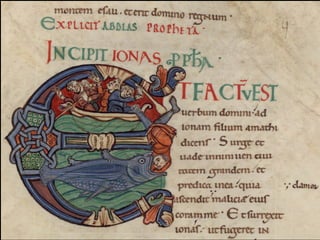 montem esau. et erit domino regnum ·
EXPLICIT ABDIAS PROPHETA ·
INCIPIT IONAS · PPHA ·
ET FACTVEST
uerbum domini ad
ionam filium amathi
dicens · Surge et
uade in niniuen ciui
tatem grandem · et
predica in ea · quia
clamor
ascendit malicia eius
coram me · Et surrexit
ionas · ut fugeret in